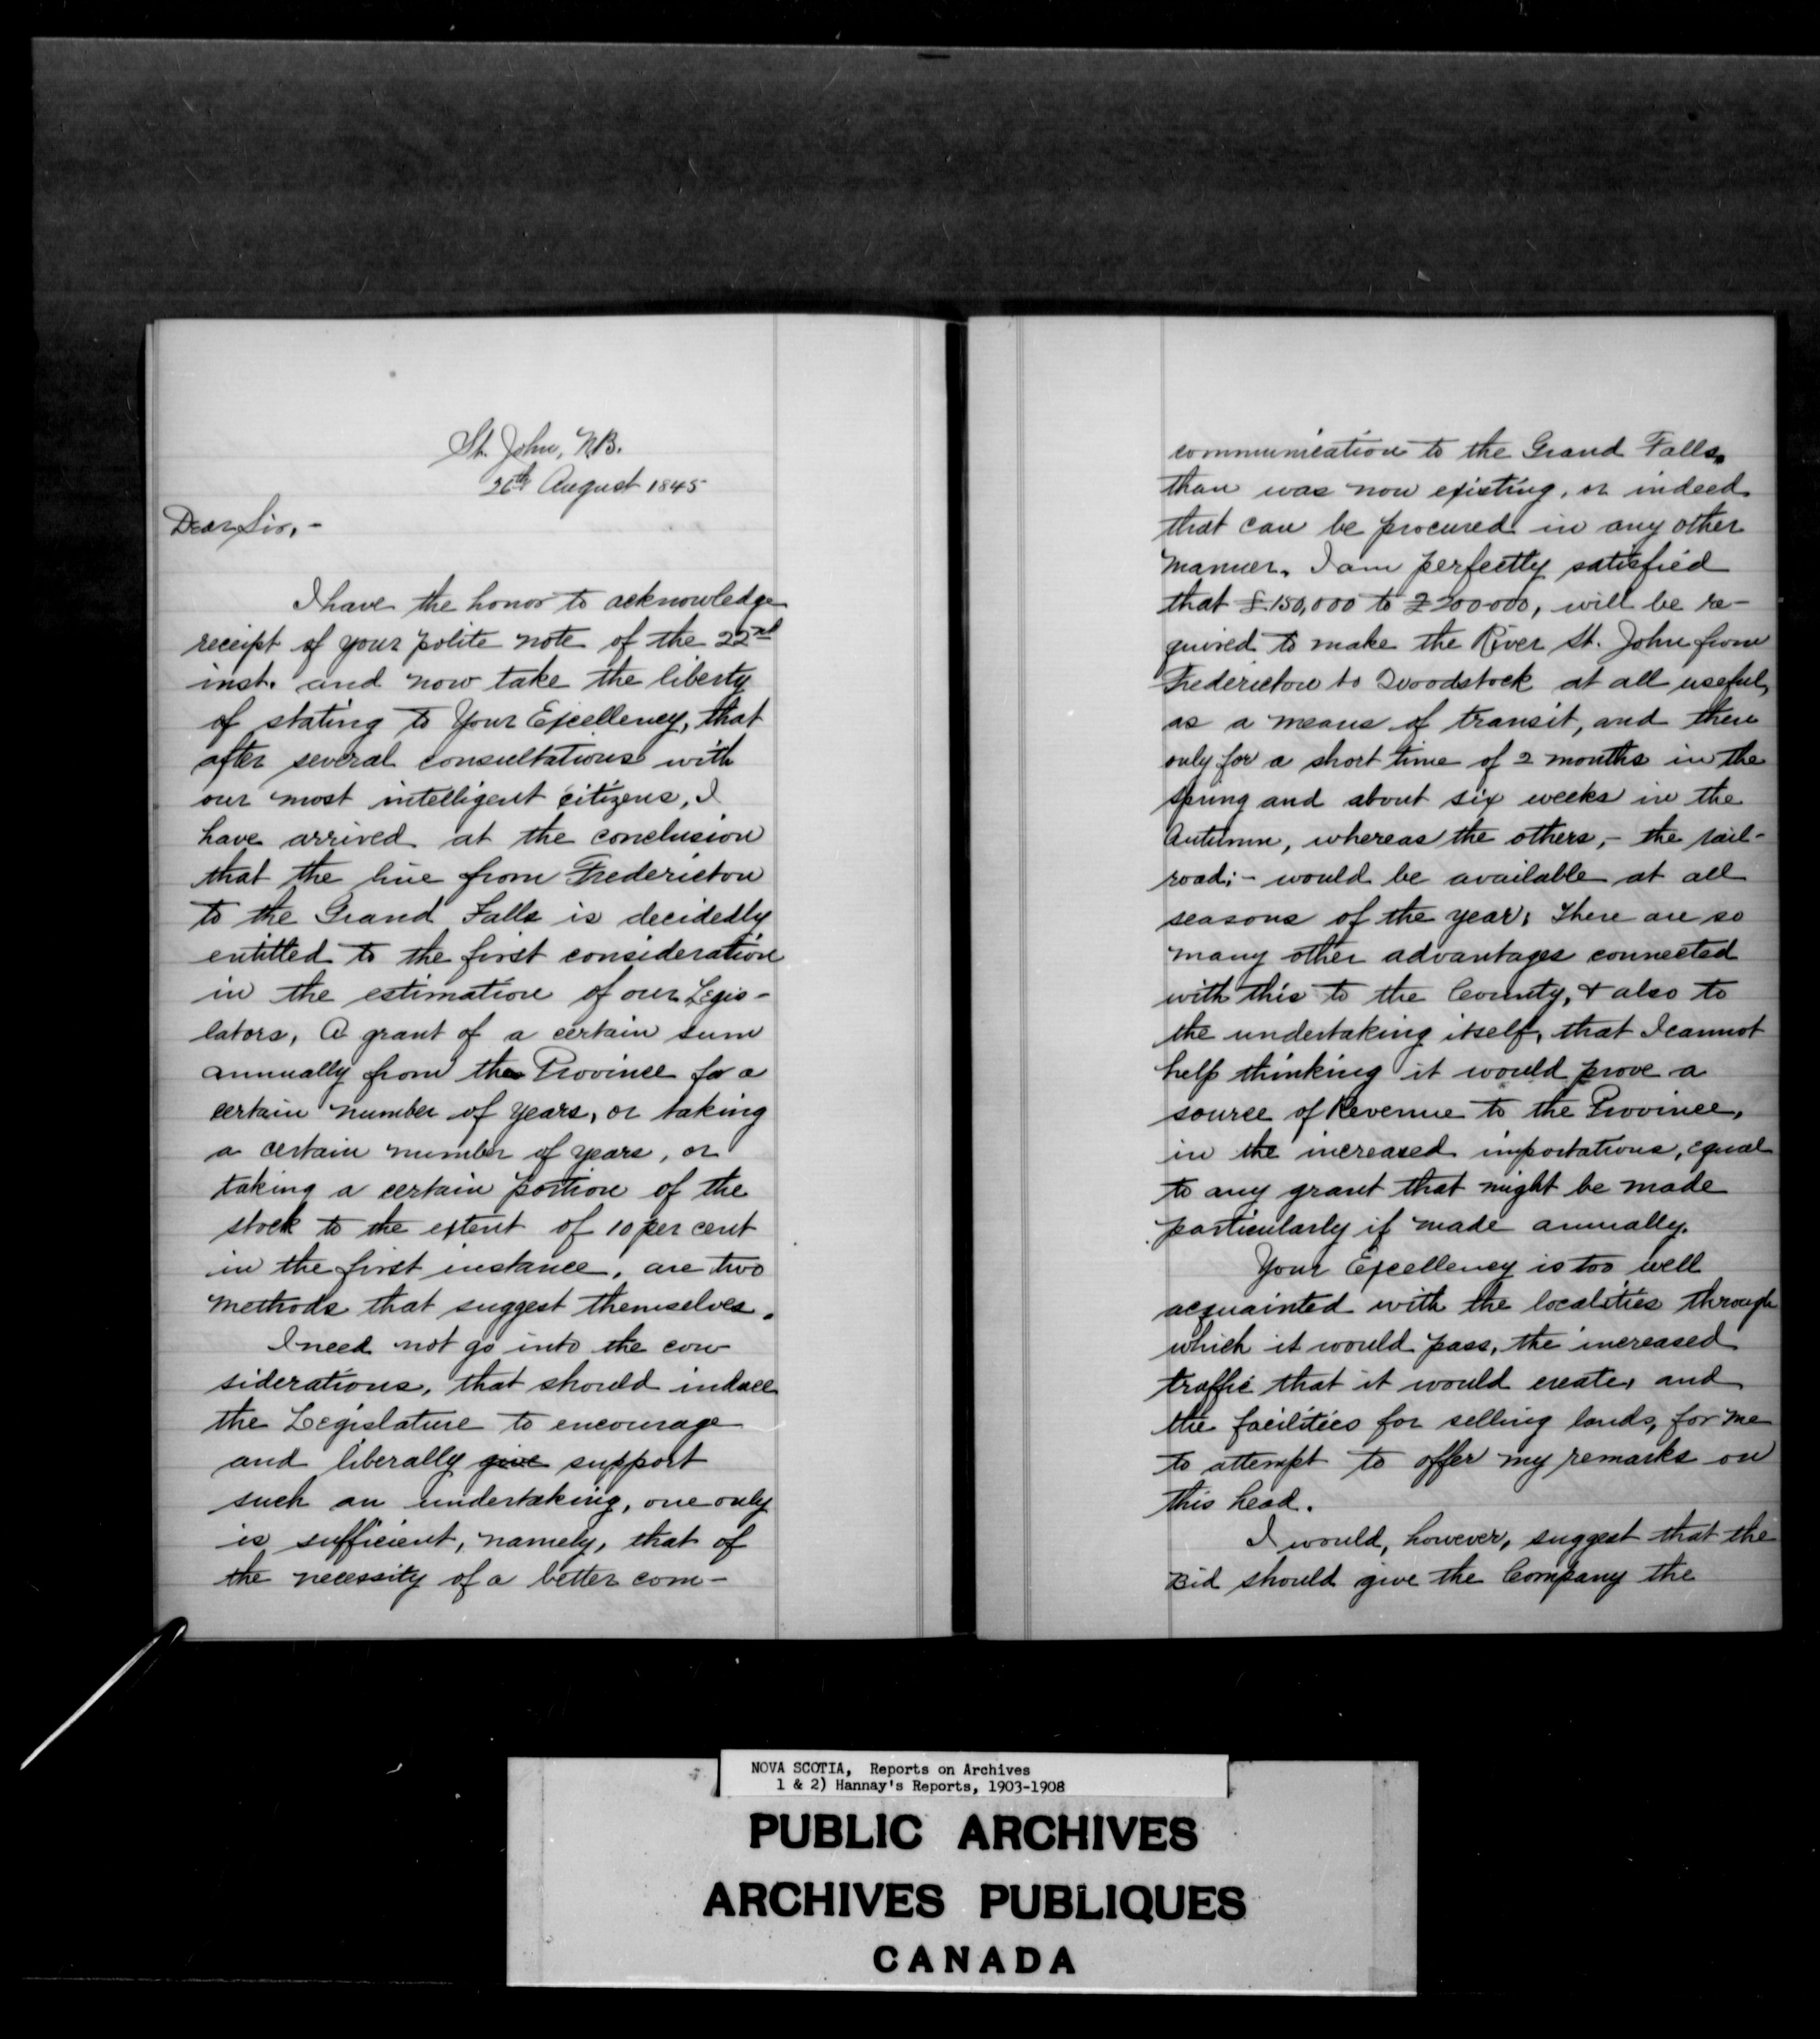 St. John, N.B.
26th August 1845
Dear Sir, -
I have the honor to acknowledge
receipt of your polite note of the 22nd
inst. and now take the liberty
of stating to Your Excellency, that
after several consultations with
our most intelligent citizens, I
have arrived at the conclusion
that the line from Fredericton
to the Grand Falls is decidedly
entitled to the first consideration
in the estimation of our Legis-
lators, A grant of a certain sum
annually from the Province for a
certain number of years, or taking
a certain number of years, or
taking a certain portion of the
stock to the extent of 10 per cent
in the first instance, are two
methods that suggest themselves.
I need not go into the con-
siderations, that should induce
the Legislature to encourage
and liberally give support
such an undertaking, one only
is sufficient, namely, that of
the necessity of a better com-
communication to the Grand Falls,
than was now existing, or indeed
that can be procured in any other
manner. I am perfectly satisfied
that £150,000 to £200000, will be re-
quired to make the River St. John from
Fredericton to Woodstock at all useful,
as a means of transit, and then
only for a short time of 2 months in the
spring and about six weeks in the
Autumn, whereas the others, - the rail-
road; - would be available at all
seasons of the year; There are so
many other advantages connected
with this to the County, & also to
the undertaking itself, that I cannot
help thinking it would prove a
source of Revenue to the Province,
in the increased importations, equal
to any grant that might be made
particularly if made annually.
Your Excellency is too well
acquainted with the localities through
which it would pass, the increased
traffic that it would create, and
the facilities for selling lands, for me
to attempt to offer my remarks on
this head.
I would, however, suggest that the
Bid should give the Company the
NOVA SCOTIA, Reports on Archives
1 & 2) Hannay's Reports, 1903-1908
PUBLIC ARCHIVES
ARCHIVES PUBLIQUES
CANADA